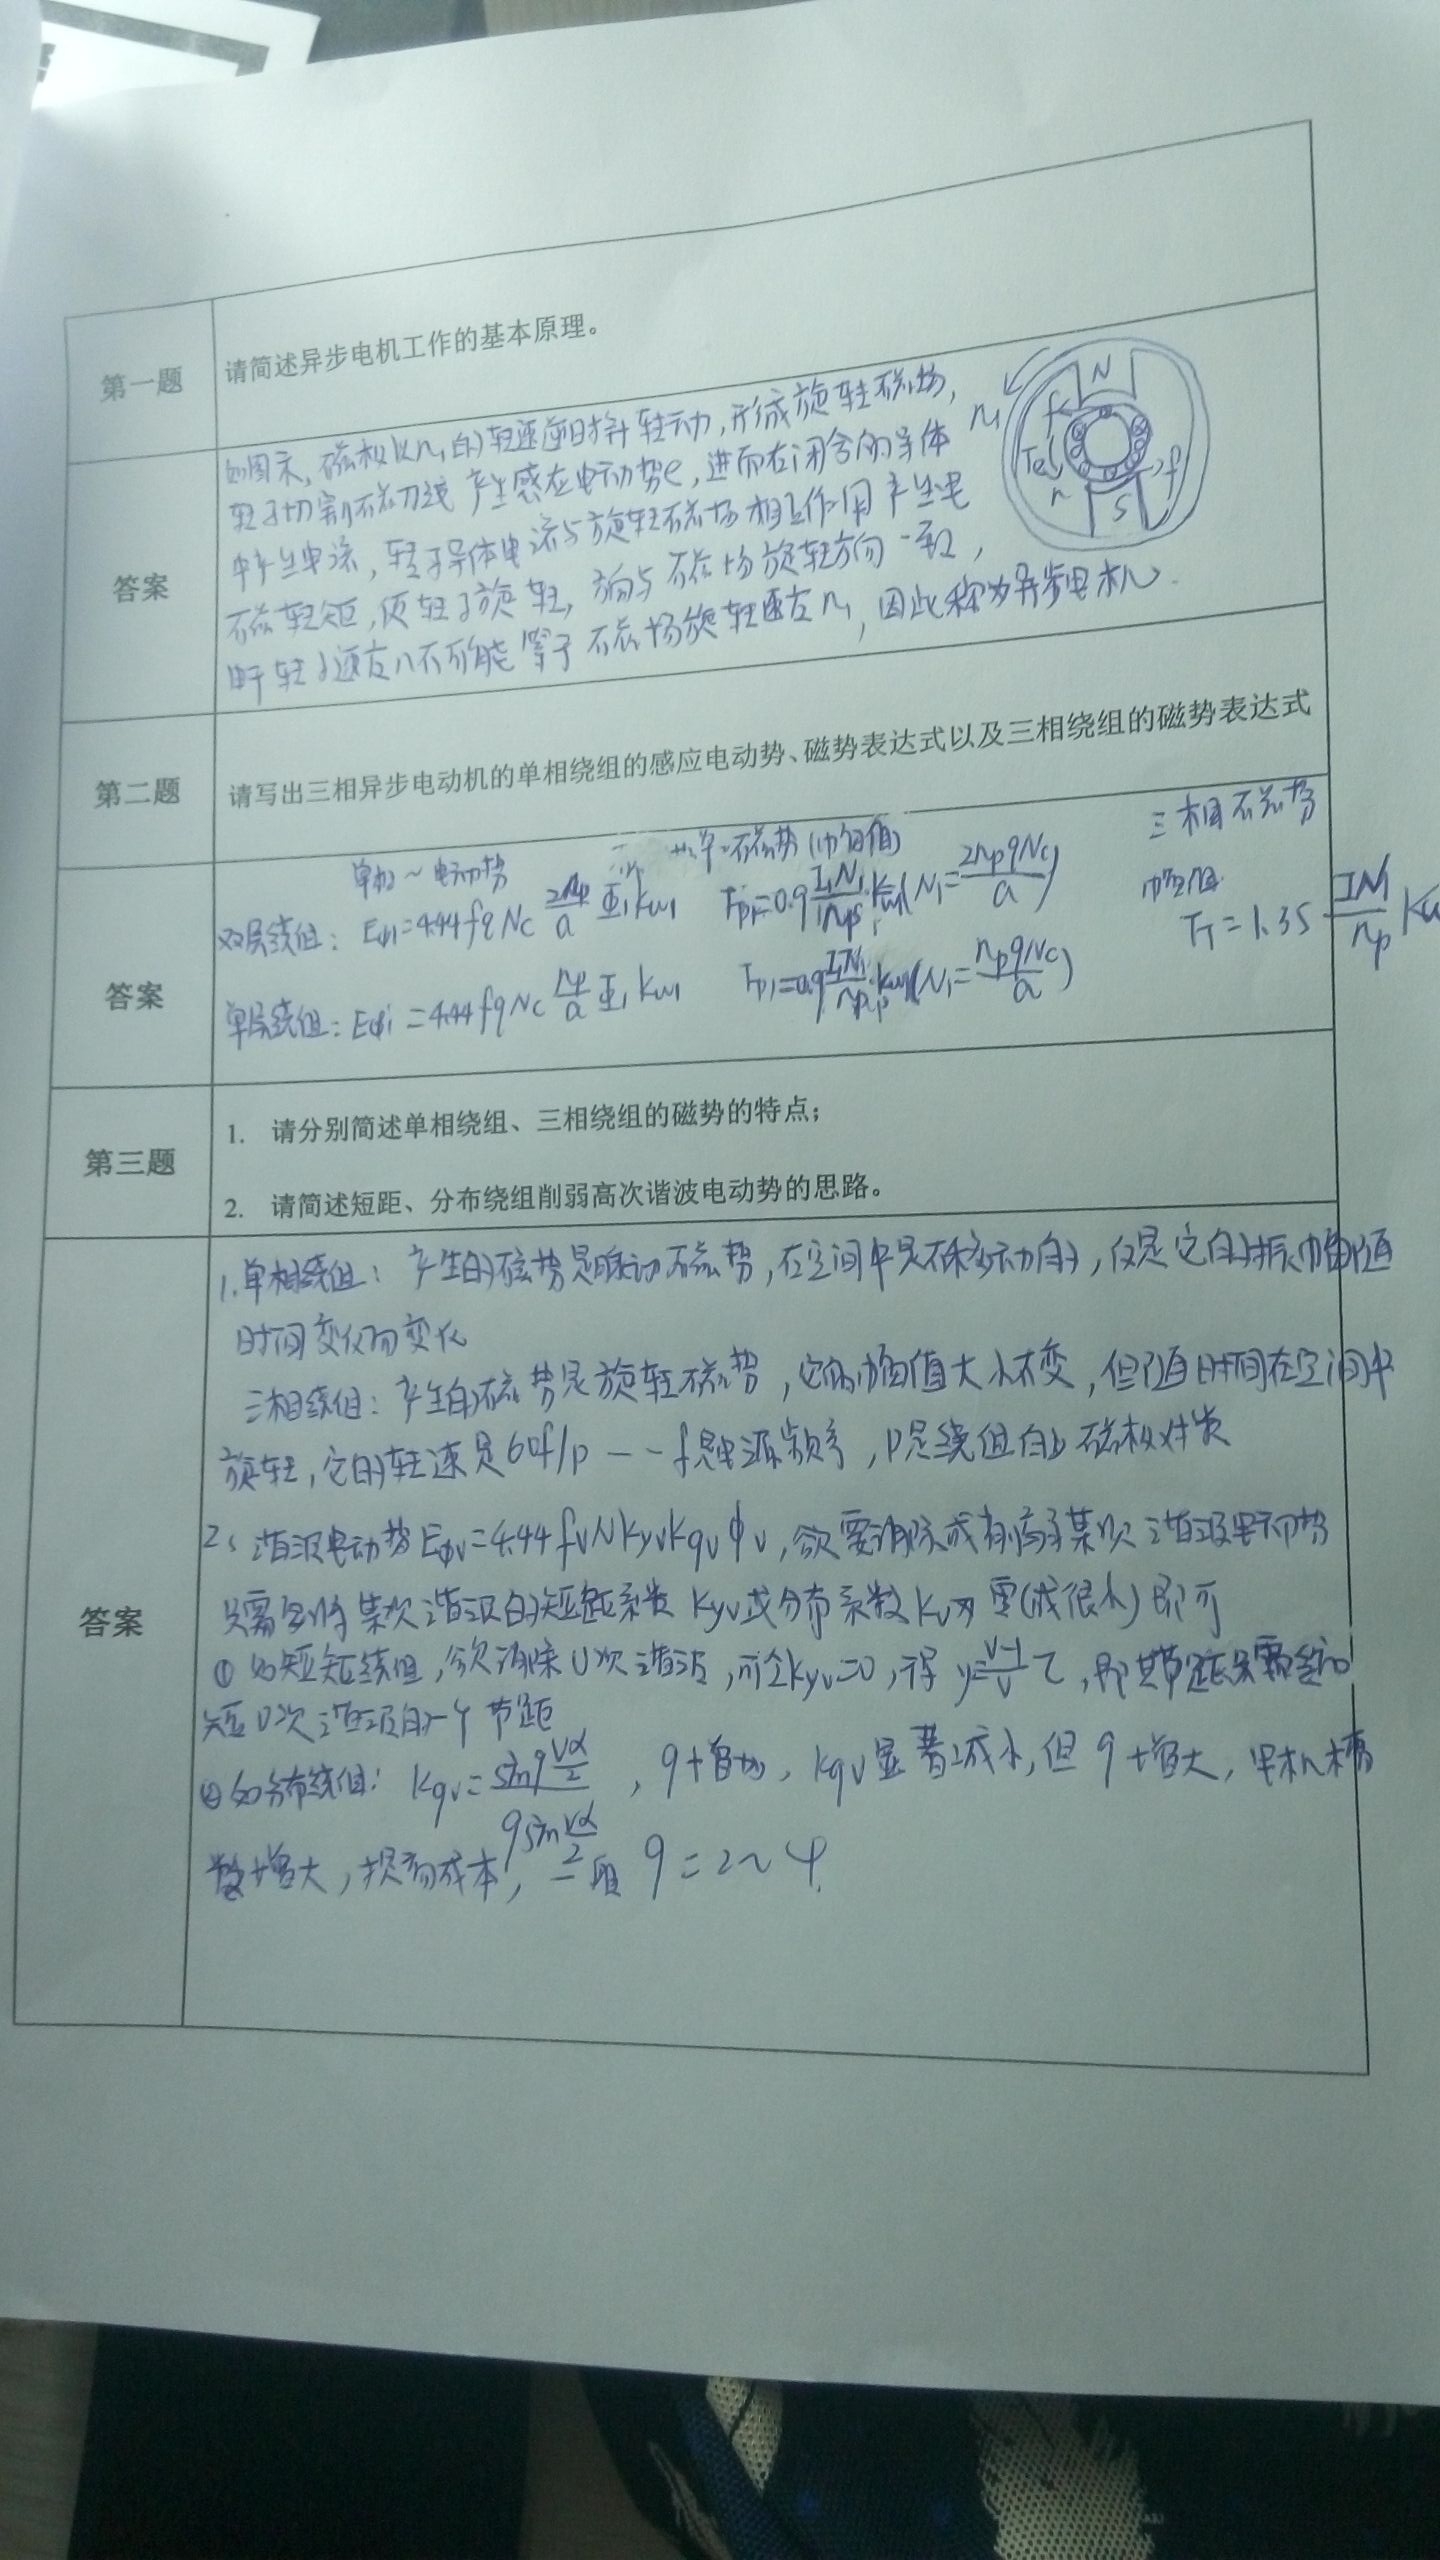 第一题
请简述异步电机工作的基本原理。
答案
如图示，磁极以n₁的转速逆时针转动，形成旋转磁场，
转子切割磁力线产生感应电动势e，进而在闭合的导体
中产生电流，转子导体电流与旋转磁场相互作用产生电
磁转矩，使转子旋转，方向与磁场旋转方向一致，
由于转子速度n不可能等于磁场旋转速度n₁，因此称为异步电机.
n₁ N f Te n S f
第二题
请写出三相异步电动机的单相绕组的感应电动势、磁势表达式以及三相绕组的磁势表达式
答案
单相~电动势 磁势(幅值) 三相磁势
双层绕组：Eφ1=4.44fqNc 2np/a Φ₁kw1 Fp1=0.9 I₁N₁/np kw1(N₁=2npqNc/a) 幅值 =1.35 IN₁/np
单层绕组：Eφ1=4.44fqNc np/a Φ₁kw1 Fp1=0.9 I₁N₁/np kw1(N₁=npqNc/a)
第三题
1. 请分别简述单相绕组、三相绕组的磁势的特点；
2. 请简述短距、分布绕组削弱高次谐波电动势的思路。
答案
1.单相绕组：产生的磁势是脉动磁势，在空间中是不移动的，仅是它的振幅随
时间变化而变化
三相绕组：产生的磁势是旋转磁势，它的幅值大小不变，但随时间在空间中
旋转，它的转速是60f/p——f是电源频率，p是绕组的磁极对数
2、谐波电动势Eφv=4.44fvNkyvkqvφv，欲要消除或削弱某次谐波电动势
只需令某次谐波的短距系数kyv或分布系数kv为零(或很小)即可
①如短距绕组，欲消除υ次谐波，可令kyv=0，得y=(v-1)/v τ，即其节距只需
短υ次谐波的一个节距
②如分布绕组：kqv=sin q(vα/2)/q sin(vα/2)，q增加，kqv显著减小，但q增大，电机槽
数增大，提高成本，一般q=2~4.